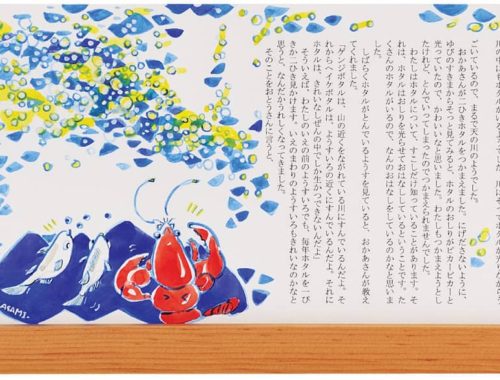 ごいているので、まるで天の川のようでした。
おかあさんが一ぴきホタルをつかまえました。にげださないように、
ゆびのすきまからそっと見てみると、ホタルのおしりがピカーピカーと
光っていたので、かわいいなと思いました。わたしもつかまえようとし
たけれど、とんでいってしまったのでつかまえられませんでした。
わたしはホタルについて、すこしだけ知っていることがあります。そ
れは、ホタルはおしりを光らせておはなししているということです。た
くさんのホタルがいるので、なんのはなしをしているのかなと思いま
した。
しばらくホタルがとんでいるようすを見ていると、おかあさんが教え
てくれました。
「ゲンジボタルは、山の近くをながれている川にすんでいるんだよ。そ
れからヘイケボタルは、ようすいろの近くにすんでいるんだよ。それに
ホタルは、きれいなしぜんの中でしか生かつできないんだよ」
そういえば、わたしのいえの前のようすいろでも、毎年ホタルを一ぴ
きか二ひき見かけます。いえのまわりのようすいろもきれいなのかなと
思うと、なんだかうれしくなってきました。
そのことをおとうさんに言うと、
ASAMI.